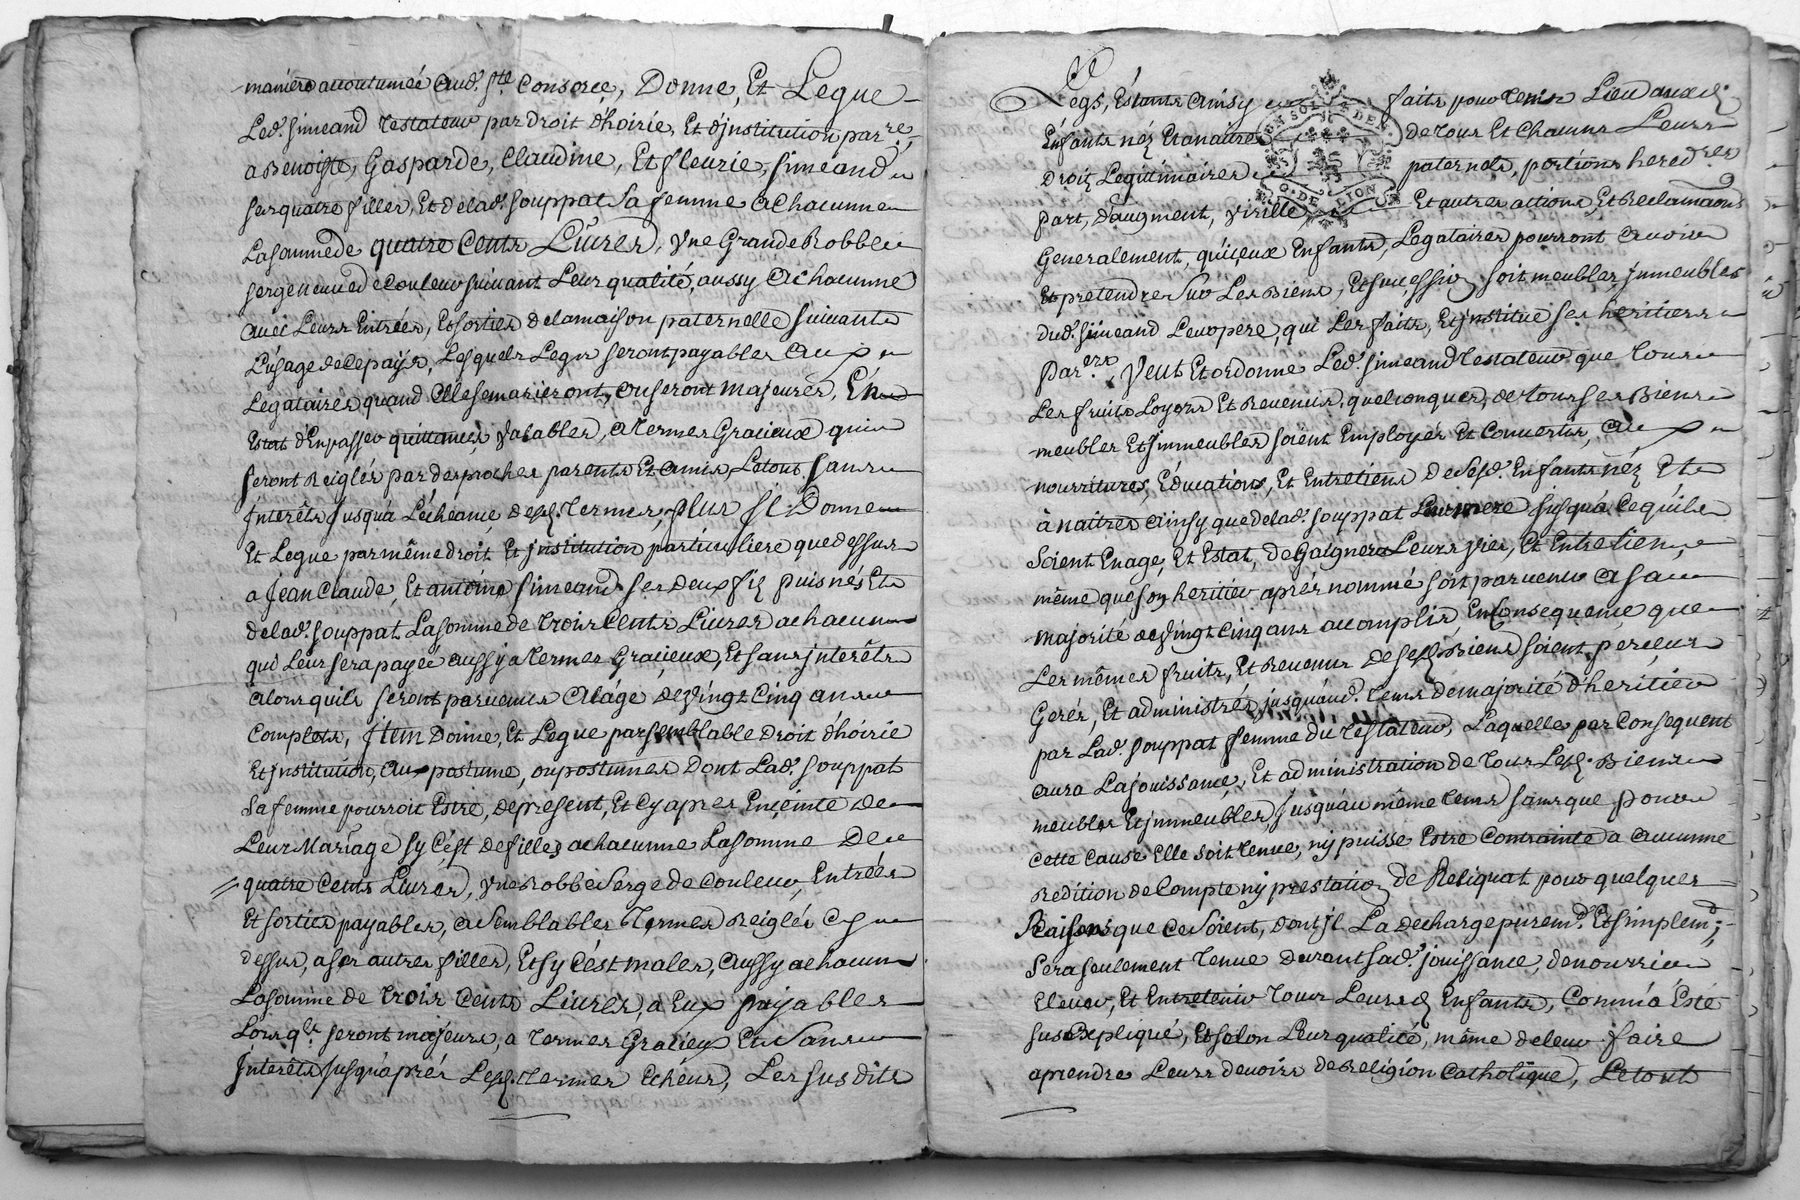 maniere accoutumée aud. Ste Consorce, Donne, Et Legue
Led. Simeand Testateur par droit d'hoirie, Et d'jnstitution par.re,
a Benoiste, Gasparde, Claudine, Et fleurie, Simeand
ses quatre filles, Et de lad. Souppat Sa femme a Chacunne
La somme de quatre Cents Livres, Vne Grande Robbe
serge neuve de Couleur suivant Leur qualité, aussy a Chacunne
avec Leurs Entrées, Et sorties de la maison paternelle suivant
L'usage de ce pays, Lesquels Legs seront payables aux
Legataires quand Elle se marieront, ou seront majeures, En
Estat d'En passer quittances valables, a Termes Gracieux qui
seront Reiglés par des proches parents Et amis, Le tout sans
jnterêts jusqu'a L'écheance desd. Termes, plus jl Donne
Et Legue par même droit Et jnstitution particuliere que dessus
a Jean Claude, Et antoine Simeand ses deux fils puisnés Et
de lad. Souppat La somme de Trois Cents Livres a chacun
qui Leur sera payée aussy a Termes Gracieux, Et sans jnterêts
alors quils seront parvenus a l'âge de vingt Cinq ans
Complets, jtem Donne, Et Legue par semblable droit d'hoirie
Et jnstitution, aux postume, ou postumes dont Lad. Souppat
Sa femme pourroit Estre, de present, Et Cy apres Enceinte de
Leur Mariage sy C'est de filles a chacunne La somme De
quatre Cents Livres, vne Robbe Serge de Couleur, Entrées
Et sorties payables, a Semblables Termes Reiglés Cy
dessus, a ses autres filles, Et sy C'est males, aussy a chacun
La somme de Trois Cents Livres, a Eux payables
Lors q.ls seront majeurs, a Termes Gracieux Et Sans
jnterêts jusqu'aprés Lesd. Termes Echeus, Les susdits
Legs, Estants Ainsy faits pour Tenir Lieu auxd.
Enfants néz Et a naitres de Tous Et Chacuns Leurs
Droits Legitimaires paternels, portions hered.res
Part, D'augment, virille, Et autres actions, Et Reclamaõns
Generalement, qu'iceux Enfants, Legataires pourront avoir
Et pretendre Sur Les Biens, Et succession soit meubles jmmeubles
dud. Simeand Leur pere, qui Les fait, Et jnstitue ses heritiers
Par.ers, Veut Et ordonne Led. Simeand Testateur que Tous
Les fruits Loyers Et Revenus, quelconques, de Tous ses Biens
meubles Et jmmeubles soient Employés Et Convertis, aux
nourritures, Educations, Et Entretiens de Sesd. Enfants néz Et
à naitres Ainsy que de lad. Souppat Leur mere jusqu'a Ce qu'ils
Soient En age, Et Estat, de Gaigner Leurs vies, Et Entretien,
même que son heritier aprés nommé soit parvenu a sa
majorité de vingt Cinq ans accomplis, En Consequence que
Les mêmes fruits, Et Revenus desesd. Biens soient perceus
Gerés, Et administrés jusqu'aud. Tems de majorité d'heritier
par Lad. Souppat femme du Testateur, Laquelle par Consequent
aura La jouissance, Et administration de Tous Lesd. Biens
meubles Et jmmeubles jusqu'au même Tems sans que pour
Cette Cause Elle soit Tenue, ny puisse Estre Contrainte a aucunne
Redition de Compte ny prestation de Reliquat pour quelques
Raisons que Ce Soient, dont jl La decharge purem.t Et simplem.t;
Sera seulement Tenue durant Sad. jouissance, de nourrir
Elever, Et Entretenir Tous Leursd. Enfants, Comm'a Esté
sus Expliqué, Et selon Leur qualité, même de leur faire
aprendre Leurs devoirs de Religion Catholique, Le tout
EN SOL DEN.
G. DE LION